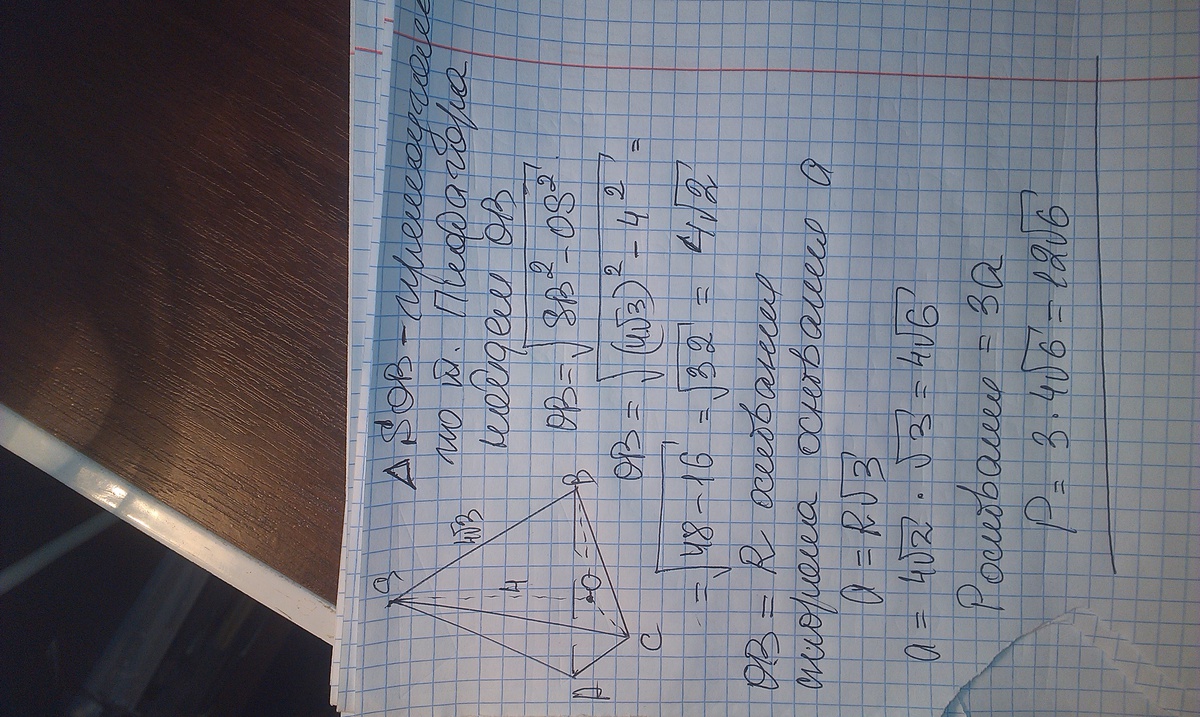 S
4√3
4
O
A
B
C
Δ SOB - прямоугольн
по т. Пифагора
найдем OB
OB = √SB² - OS²
OB = √(4√3)² - 4² =
= √48 - 16 = √32 = 4√2
OB = R основания
сторона основания a
a = R√3
a = 4√2 · √3 = 4√6
Pоснование = 3a
P = 3 · 4√6 = 12√6